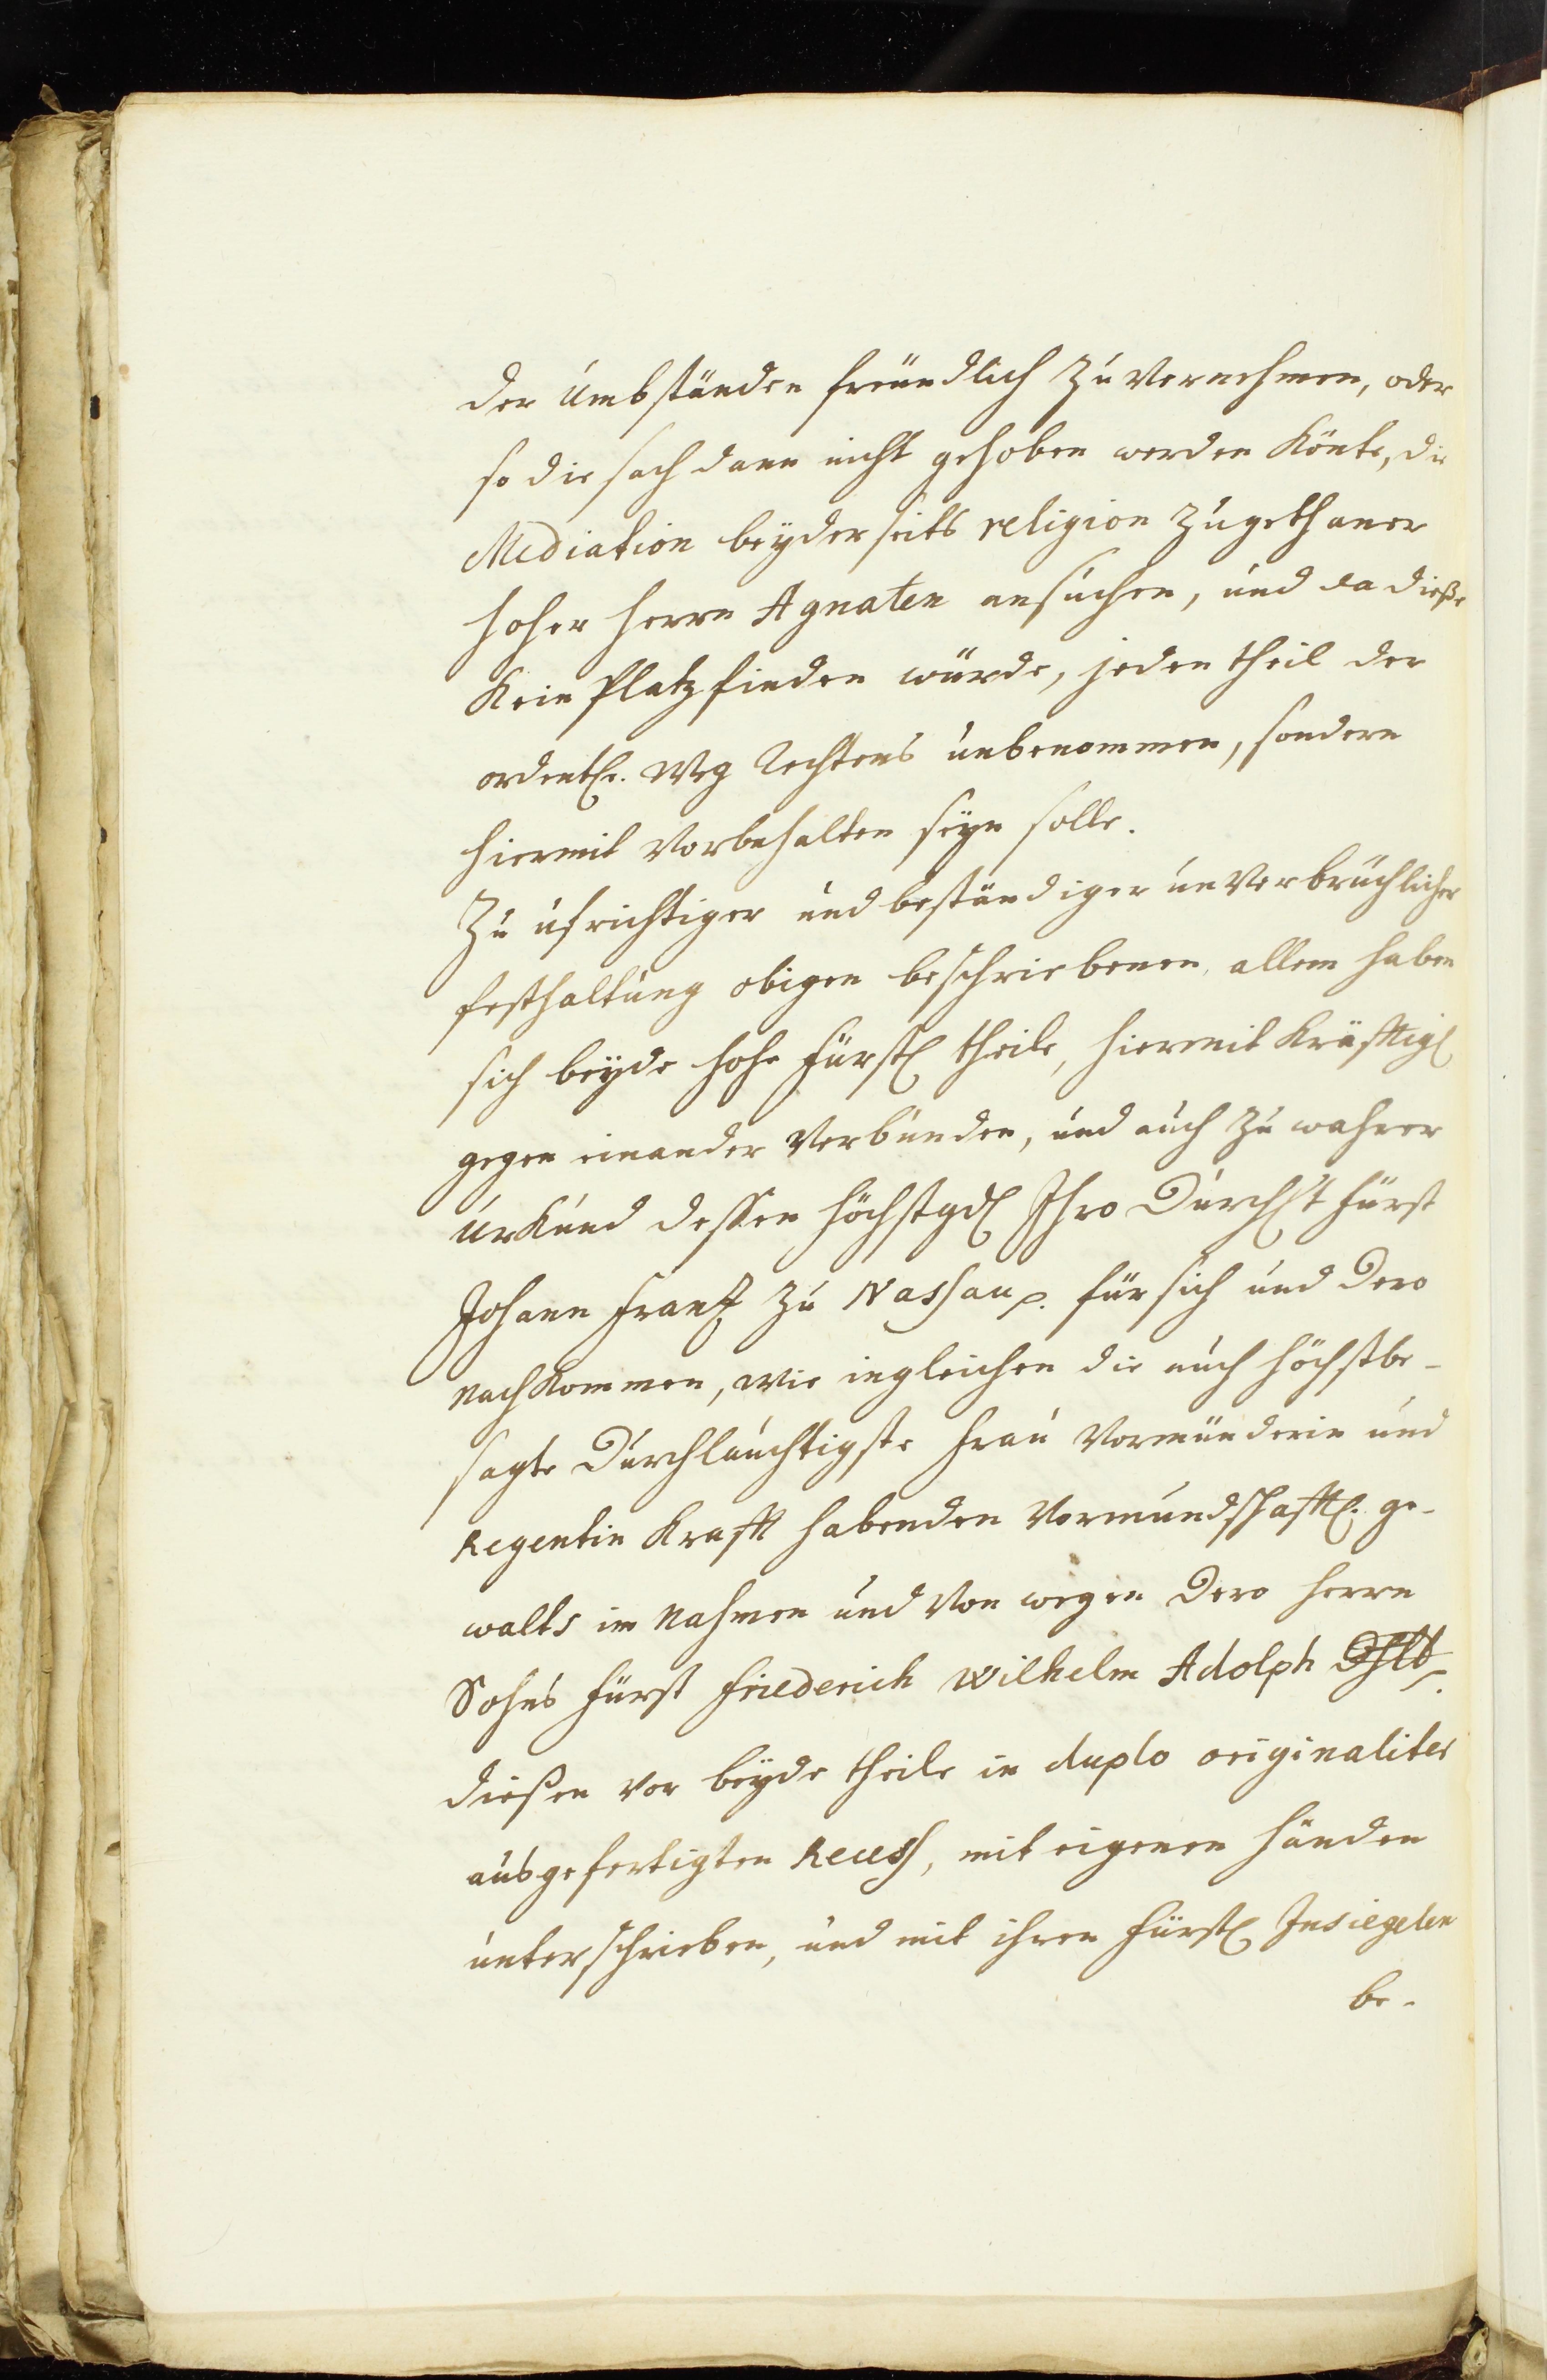 der Umbständen freündlich zu Vernehmen, oder
so die sach dann nicht gehoben werden Könte, die
Mediation beÿderseits religion zugethaner
hoher Herrn Agnaten ansuchen, und da dieße
Kein Platz finden würde, jeden theil der
ordentl. Weg Rechtens unbenommen, sondern
hiermit Vorbehalten seÿn solle.
Zu ufrichtiger und beständiger unVerbrüchlicher
festhaltung obigen beschriebenen allem haben
sich beÿde hohe Fürstl theile, hiermit Kräfftigl
gegen einander Verbunden, und auch zu wahrer
UrKund dessen Höchstgdl Ihro Durchlt Fürst
Johann Frantz zu Nassau p. für sich und Dero
NachKommen, wie ingleichen die auch höchstbe-
sagte Durchlauchtigste Frau Vormünderin und
Regentin Krafft habenden Vormundschafftl. ge-
walts im Nahmen und Von wegen Dero Herrn
Sohns Fürst Friederich Wilhelm Adolph
dießen vor beÿde theile in duplo originaliter
ausgefertigten Recess, mit eigenen Händen
unterschrieben, und mit ihren Fürstl Insiegelen
be-